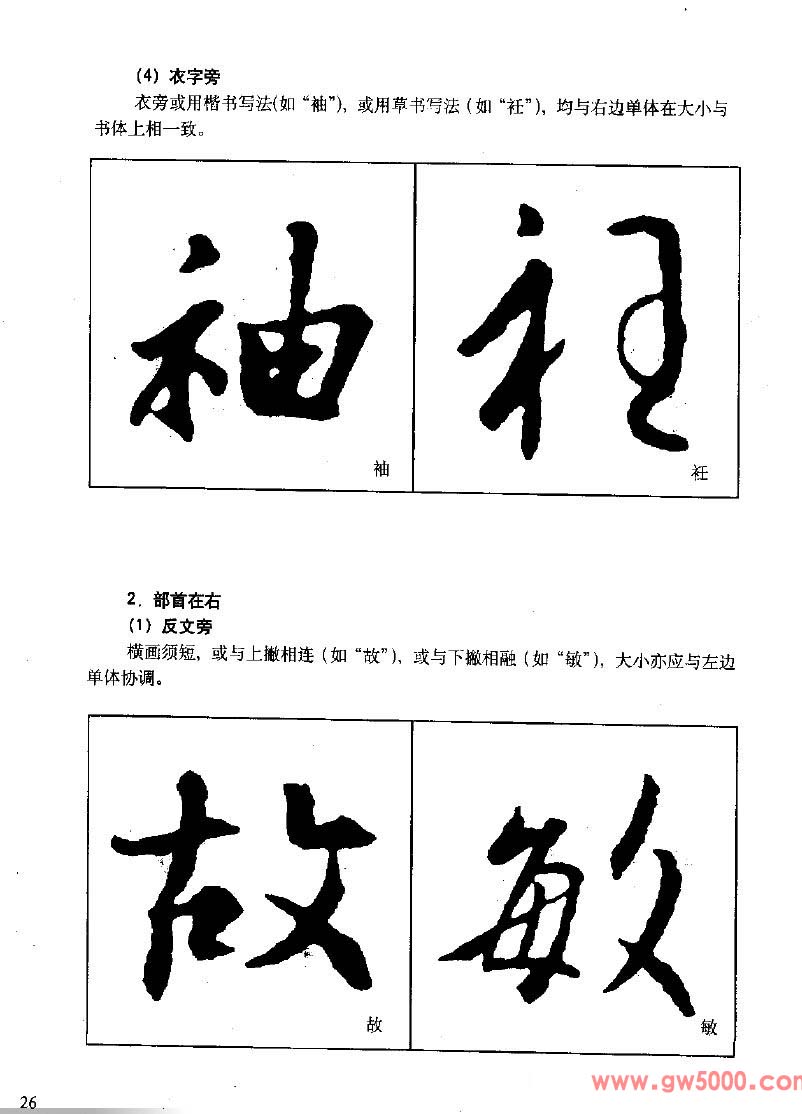 (4) 衣字旁
衣旁或用楷书写法(如“袖”)，或用草书写法(如“衽”)，均与右边单体在大小与
书体上相一致。
袖 衽
袖 衽
2. 部首在右
(1) 反文旁
横画须短，或与上撇相连(如“故”)，或与下撇相融(如“敏”)，大小亦应与左边
单体协调。
故 敏
故 敏
26
www.gw5000.com